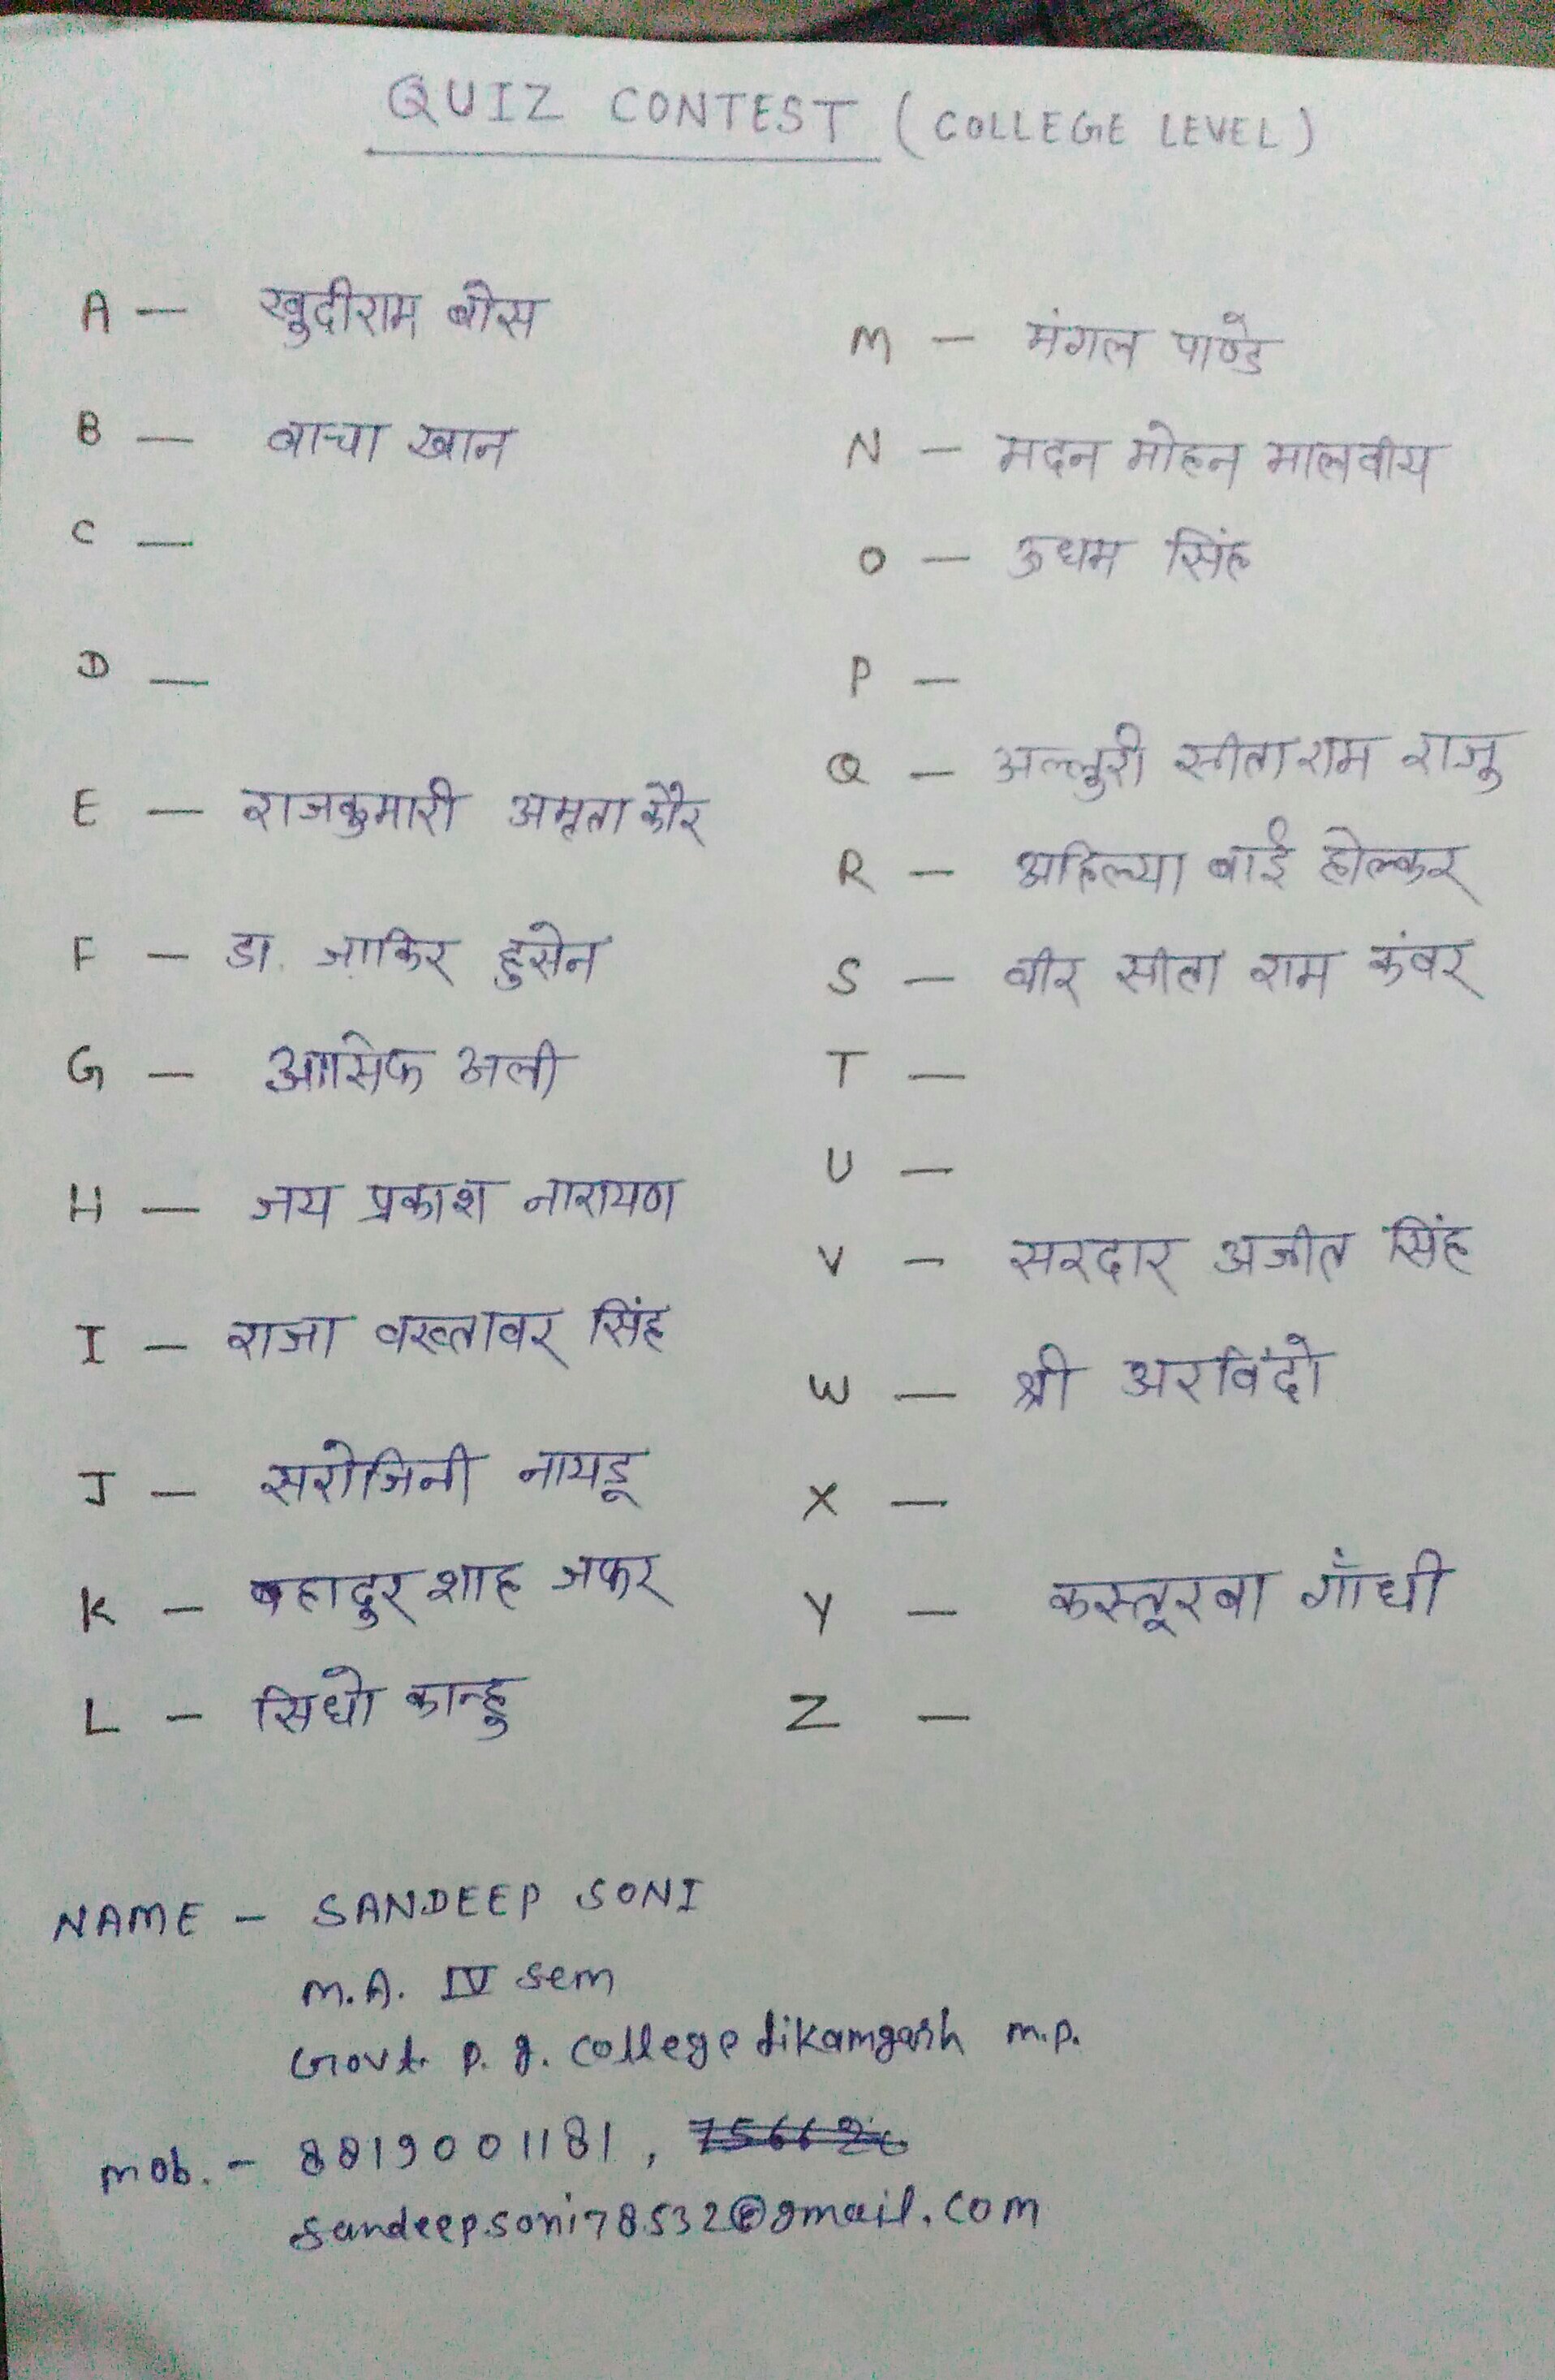 QUIZ CONTEST (COLLEGE LEVEL)
A — खुदीराम बोस
B — बाचा खान
C —
D —
E — राजकुमारी अमृता कौर
F — डा. जाकिर हुसेन
G — आसिफ अली
H — जय प्रकाश नारायण
I — राजा वख्तावर सिंह
J — सरोजिनी नायडू
K — बहादुर शाह जफर
L — सिधो कान्हु
M — मंगल पाण्डे
N — मदन मोहन मालवीय
O — ऊधम सिंह
P —
Q — अल्लुरी सीताराम राजु
R — अहिल्या बाई होल्कर
S — वीर सीता राम कंवर
T —
U —
V — सरदार अजीत सिंह
W — श्री अरविंदो
X —
Y — कस्तूरबा गाँधी
Z —
NAME — SANDEEP SONI
M.A. IV sem
Govt. P. g. College tikamgarh m.p.
mob. - 8819001181,
sandeepsoni78532@gmail.com